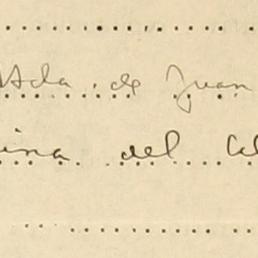 Hda. de Juan
ina del